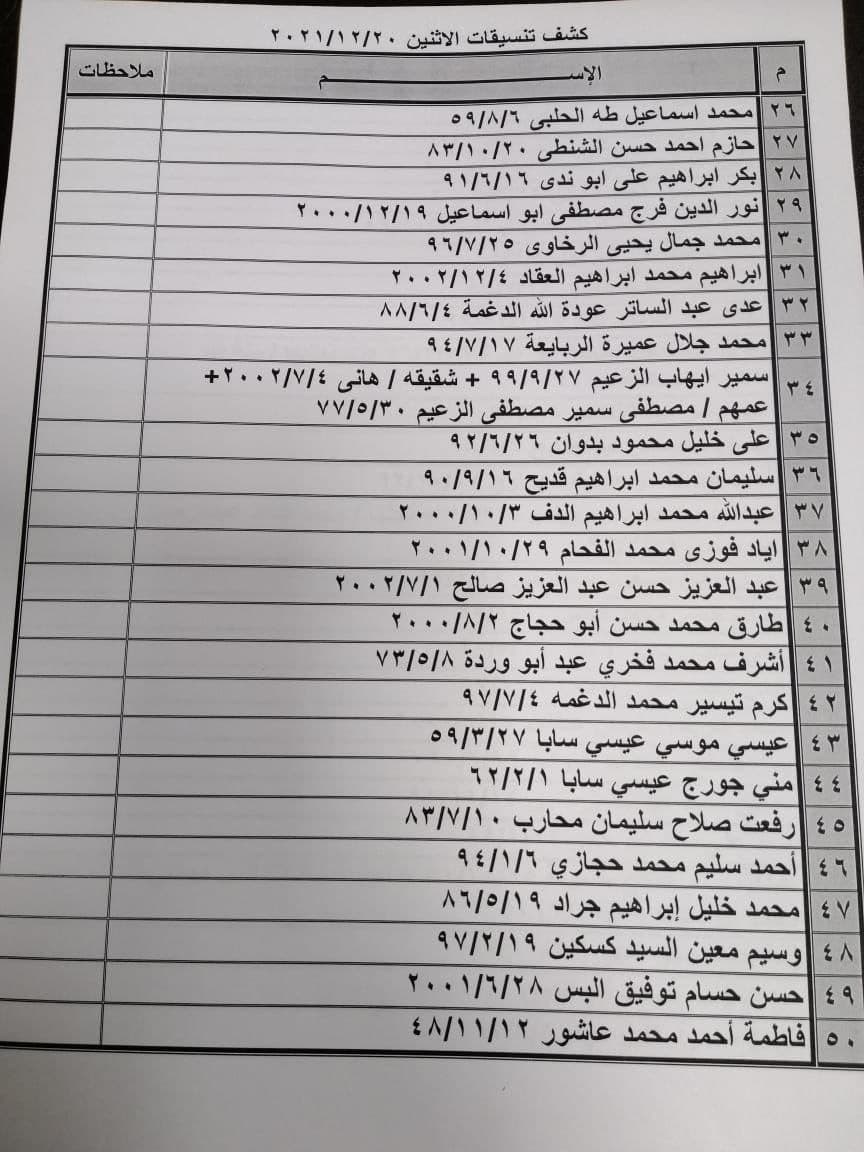 كشف تنسيقات الاثنين ٢٠٢١/١٢/٢٠
م الإســـــــم ملاحظات
٢٦ محمد اسماعيل طه الحلبى ٥٩/٨/٦
٢٧ حازم احمد حسن الشنطى ٨٣/١٠/٢٠
٢٨ بكر ابراهيم على ابو ندى ٩١/٦/١٦
٢٩ نور الدين فرج مصطفى ابو اسماعيل ٢٠٠٠/١٢/١٩
٣٠ محمد جمال يحيى الرخاوى ٩٦/٧/٢٥
٣١ ابراهيم محمد ابراهيم العقاد ٢٠٠٢/١٢/٤
٣٢ عدى عبد الساتر عودة الله الدغمة ٨٨/٦/٤
٣٣ محمد جلال عميرة الربايعة ٩٤/٧/١٧
٣٤ سمير ايهاب الزعيم ٩٩/٩/٢٧ + شقيقه / هانى ٢٠٠٢/٧/٤+
عمهم / مصطفى سمير مصطفى الزعيم ٧٧/٥/٣٠
٣٥ على خليل محمود بدوان ٩٢/٦/٢٦
٣٦ سليمان محمد ابراهيم قديح ٩٠/٩/١٦
٣٧ عبدالله محمد ابراهيم الدف ٢٠٠٠/١٠/٣
٣٨ اياد فوزى محمد الفحام ٢٠٠١/١٠/٢٩
٣٩ عبد العزيز حسن عبد العزيز صالح ٢٠٠٢/٧/١
٤٠ طارق محمد حسن أبو حجاج ٢٠٠٠/٨/٢
٤١ أشرف محمد فخري عبد أبو وردة ٧٣/٥/٨
٤٢ كرم تيسير محمد الدغمه ٩٧/٧/٤
٤٣ عيسي موسي عيسي سابا ٥٩/٣/٢٧
٤٤ مني جورج عيسي سابا ٦٢/٢/١
٤٥ رفعت صلاح سليمان محارب ٨٣/٧/١٠
٤٦ أحمد سليم محمد حجازي ٩٤/١/٦
٤٧ محمد خليل إبراهيم جراد ٨٦/٥/١٩
٤٨ وسيم معين السيد كسكين ٩٧/٢/١٩
٤٩ حسن حسام توفيق البس ٢٠٠١/٦/٢٨
٥٠ فاطمة أحمد محمد عاشور ٤٨/١١/١٢